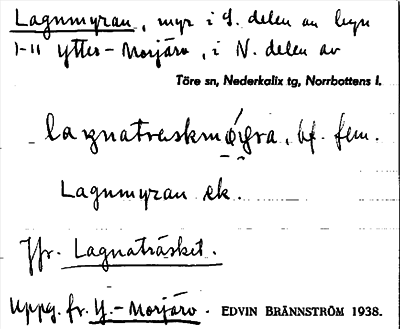 Lagnmyran, myr i S. delen av byn
1-11 Ytter-Morjärv, i N. delen av
Töre sn, Nederkalix tg, Norrbottens l.
lagnatraskmøyra, bf. fem.
Lagnmyran ek.
Jfr. Lagnaträsket.
Uppg. fr. Y.-Morjärv. EDVIN BRÄNNSTRÖM 1938.